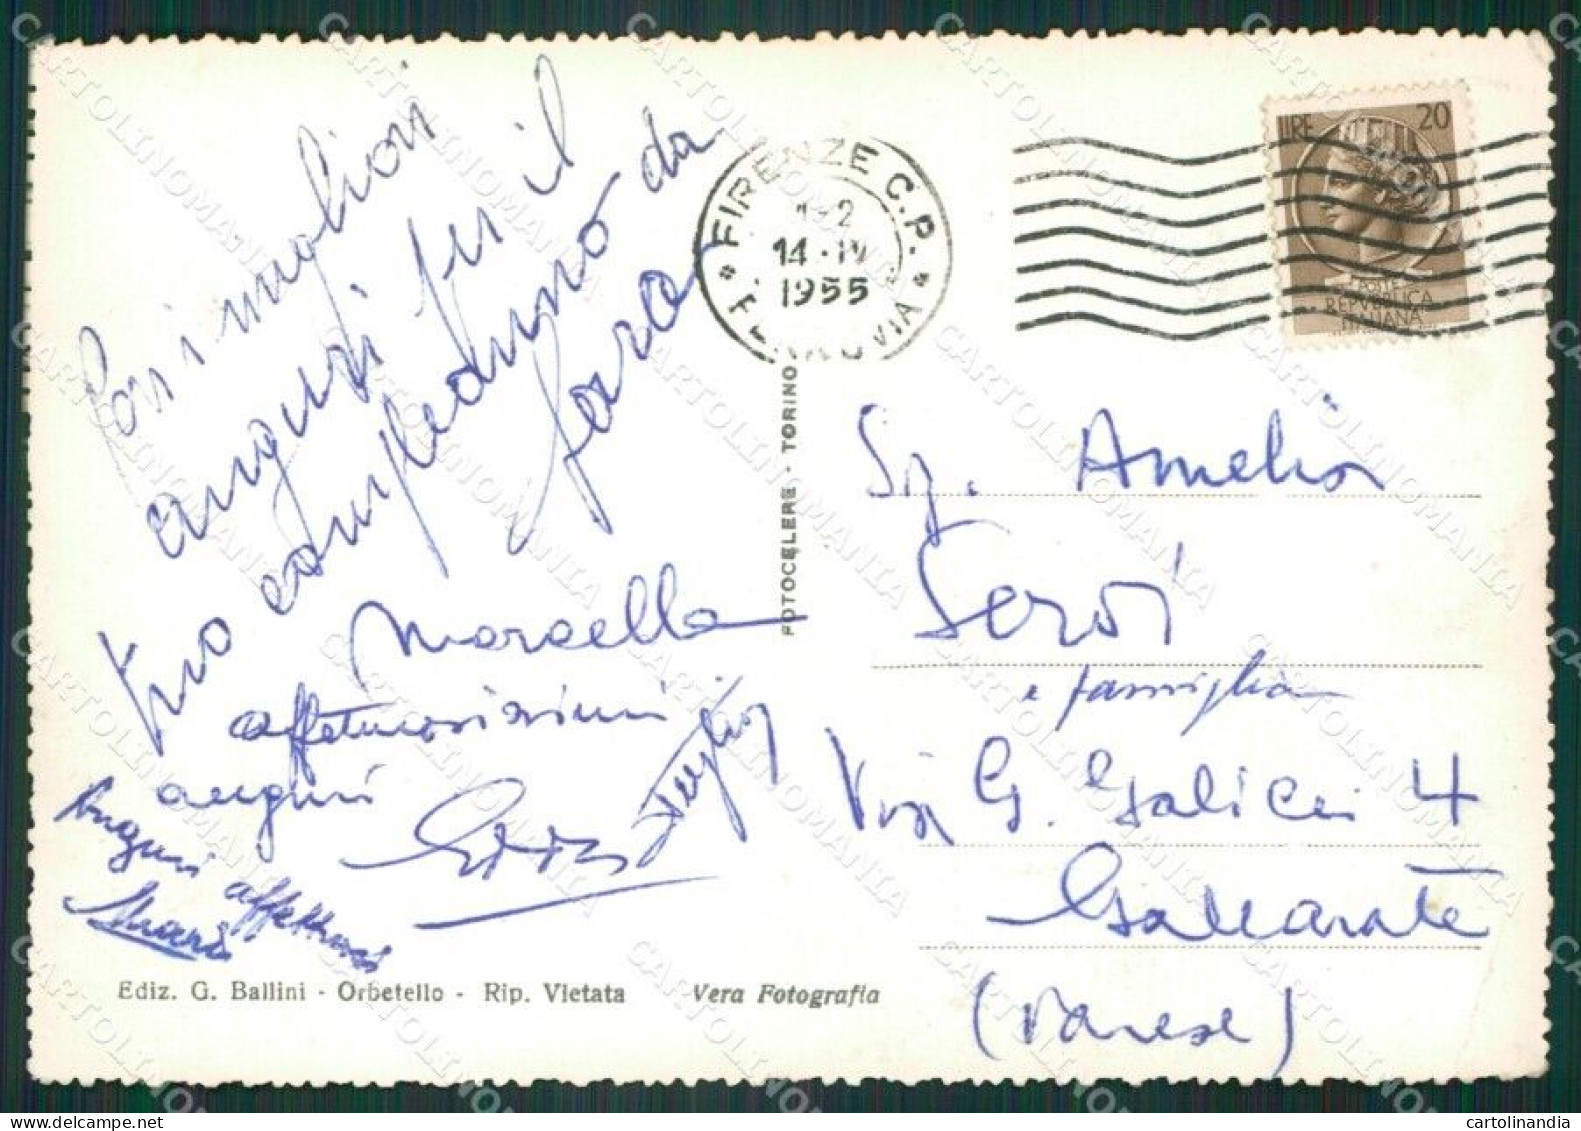 Con i migliori
auguri per il
tuo compleanno da
Marcella
affettuosissimi
auguri
Auguri affettuosi
Mario
FIRENZE C.P.
1-2
14·IV
1955
LIRE 20
POSTE
REPVBBLICA
ITALIANA
FOTOCELERE - TORINO
Sig. Amelia
Servi
e famiglia
Via G. Galilei 4
Gallarate
(Varese)
Ediz. G. Ballini - Orbetello - Rip. Vietata Vera Fotografia
CARTOLINOMANIA
cartolinandia